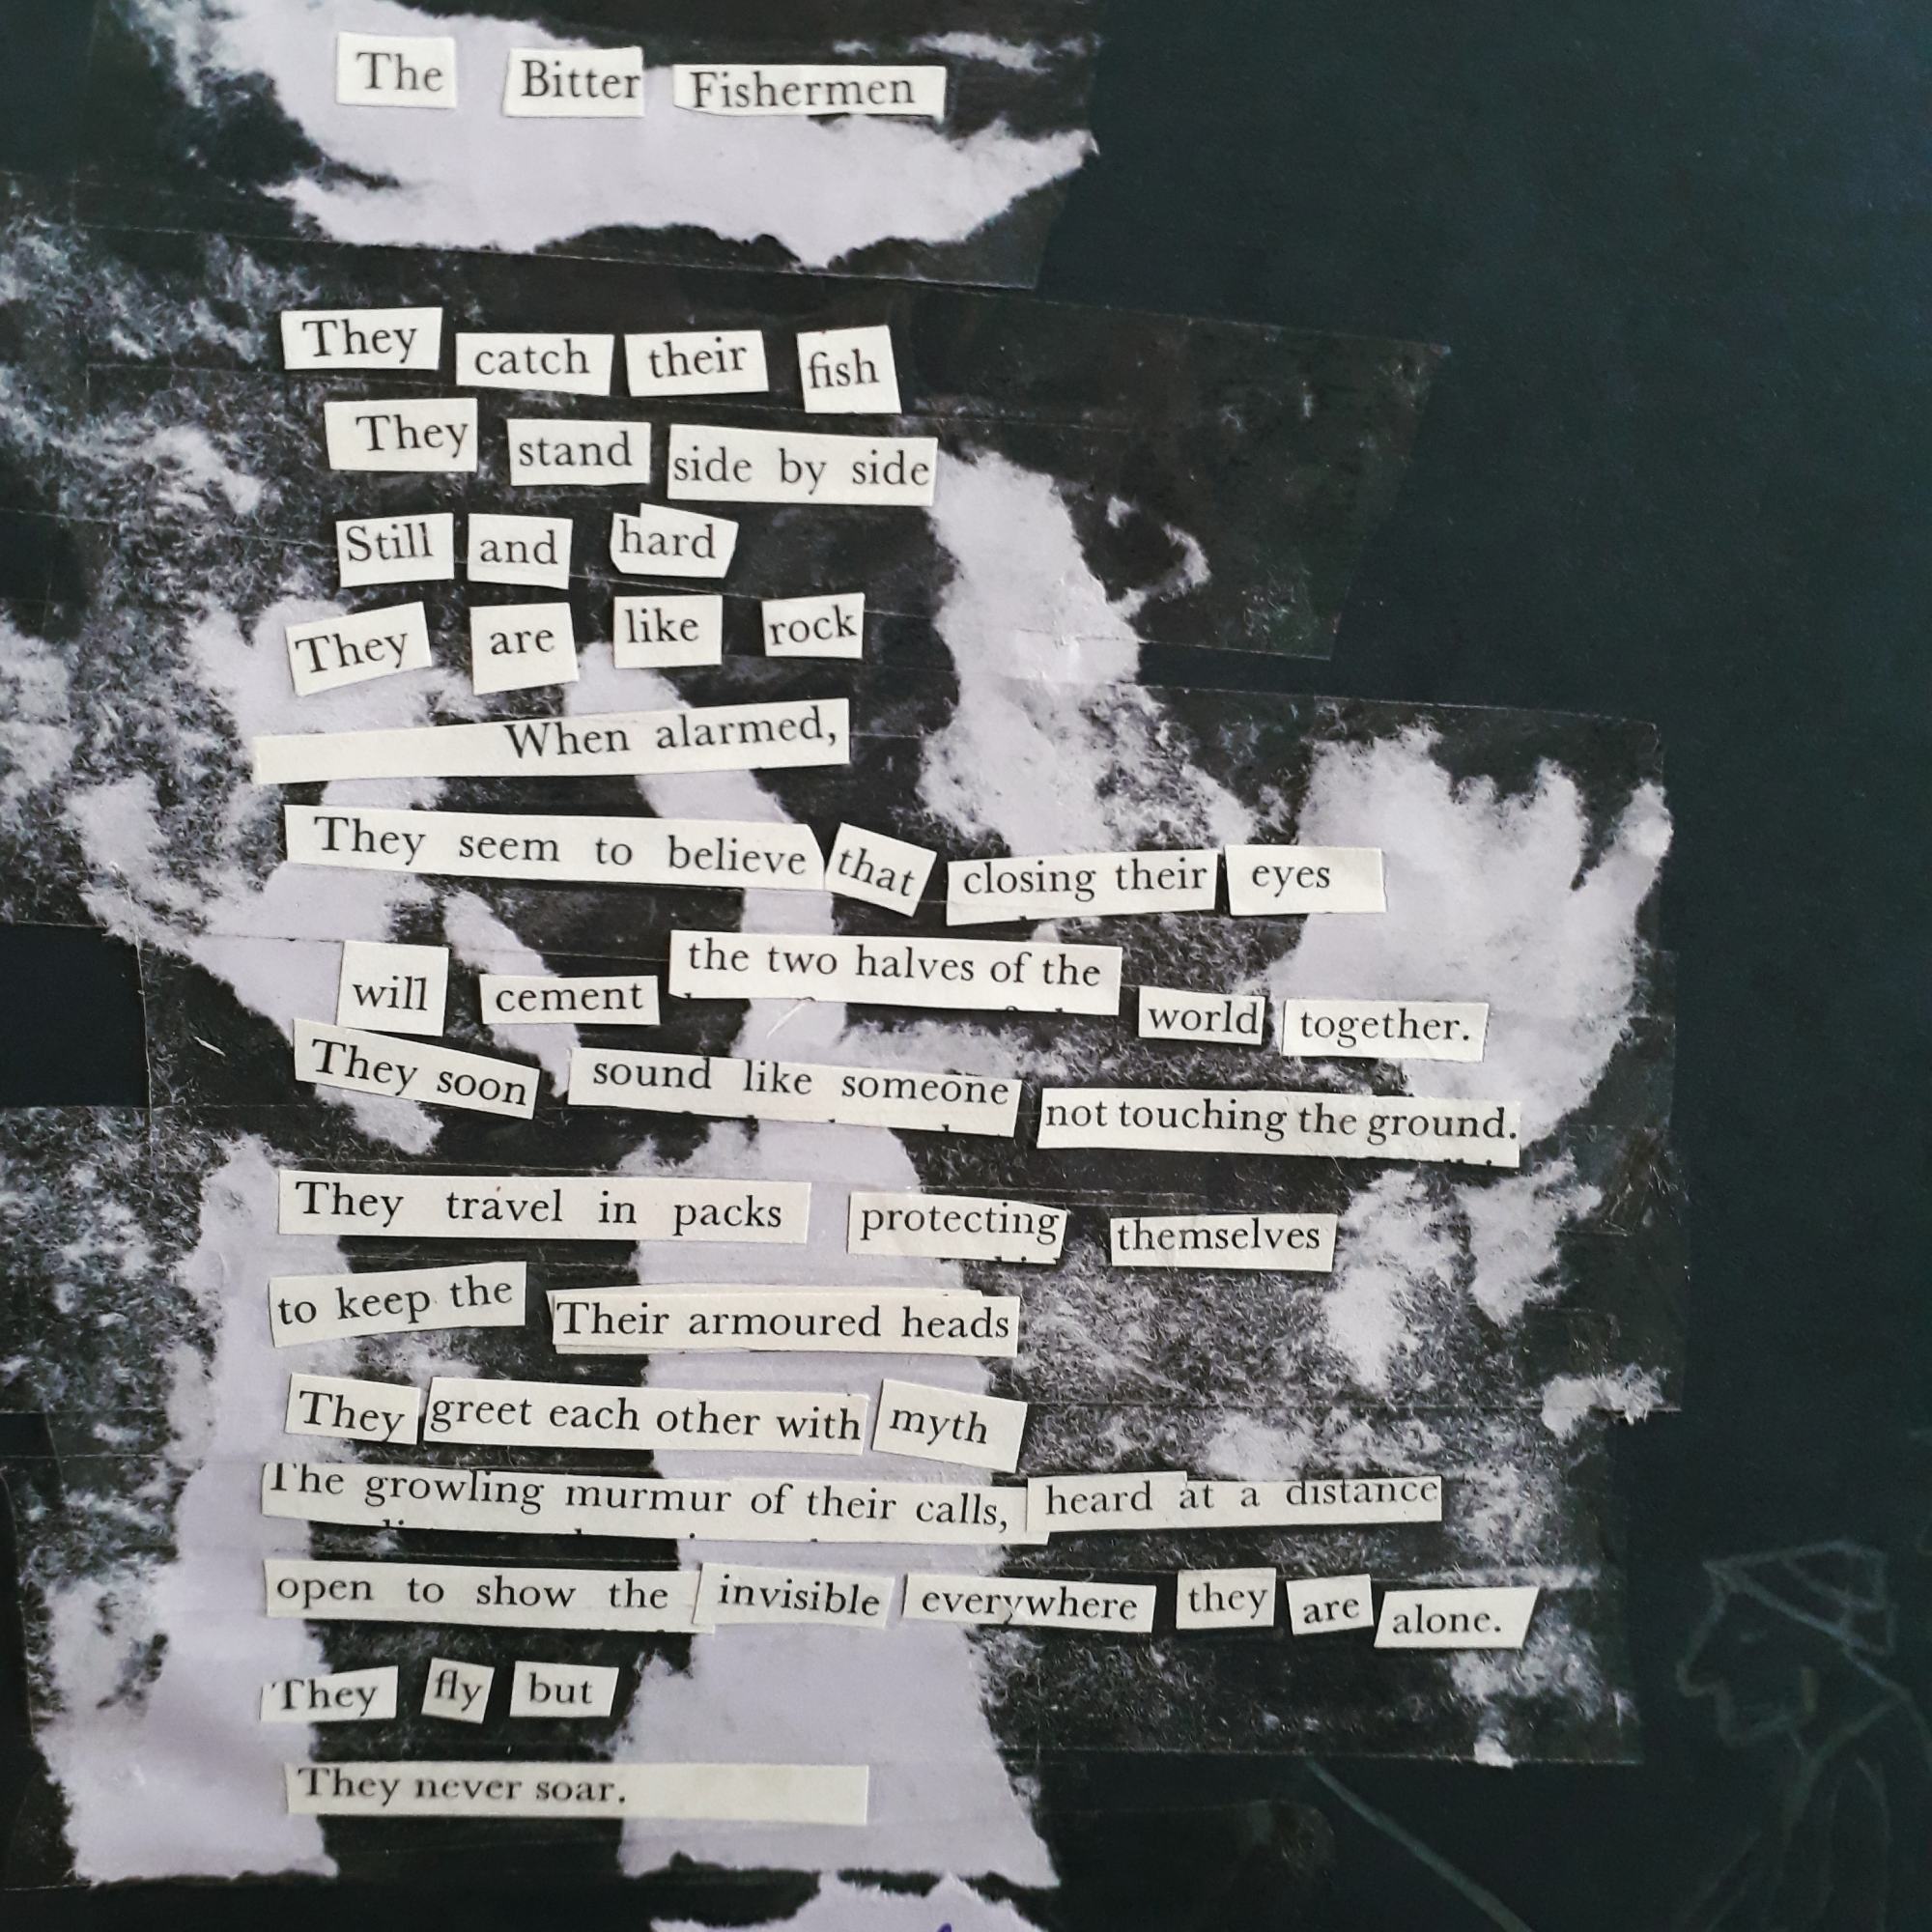 The Bitter Fishermen
They catch their fish
They stand side by side
Still and hard
They are like rock
When alarmed,
They seem to believe that closing their eyes
will cement the two halves of the world together.
They soon sound like someone not touching the ground.
They travel in packs protecting themselves
to keep the Their armoured heads
They greet each other with myth
The growling murmur of their calls, heard at a distance
open to show the invisible everywhere they are alone.
They fly but
They never soar.